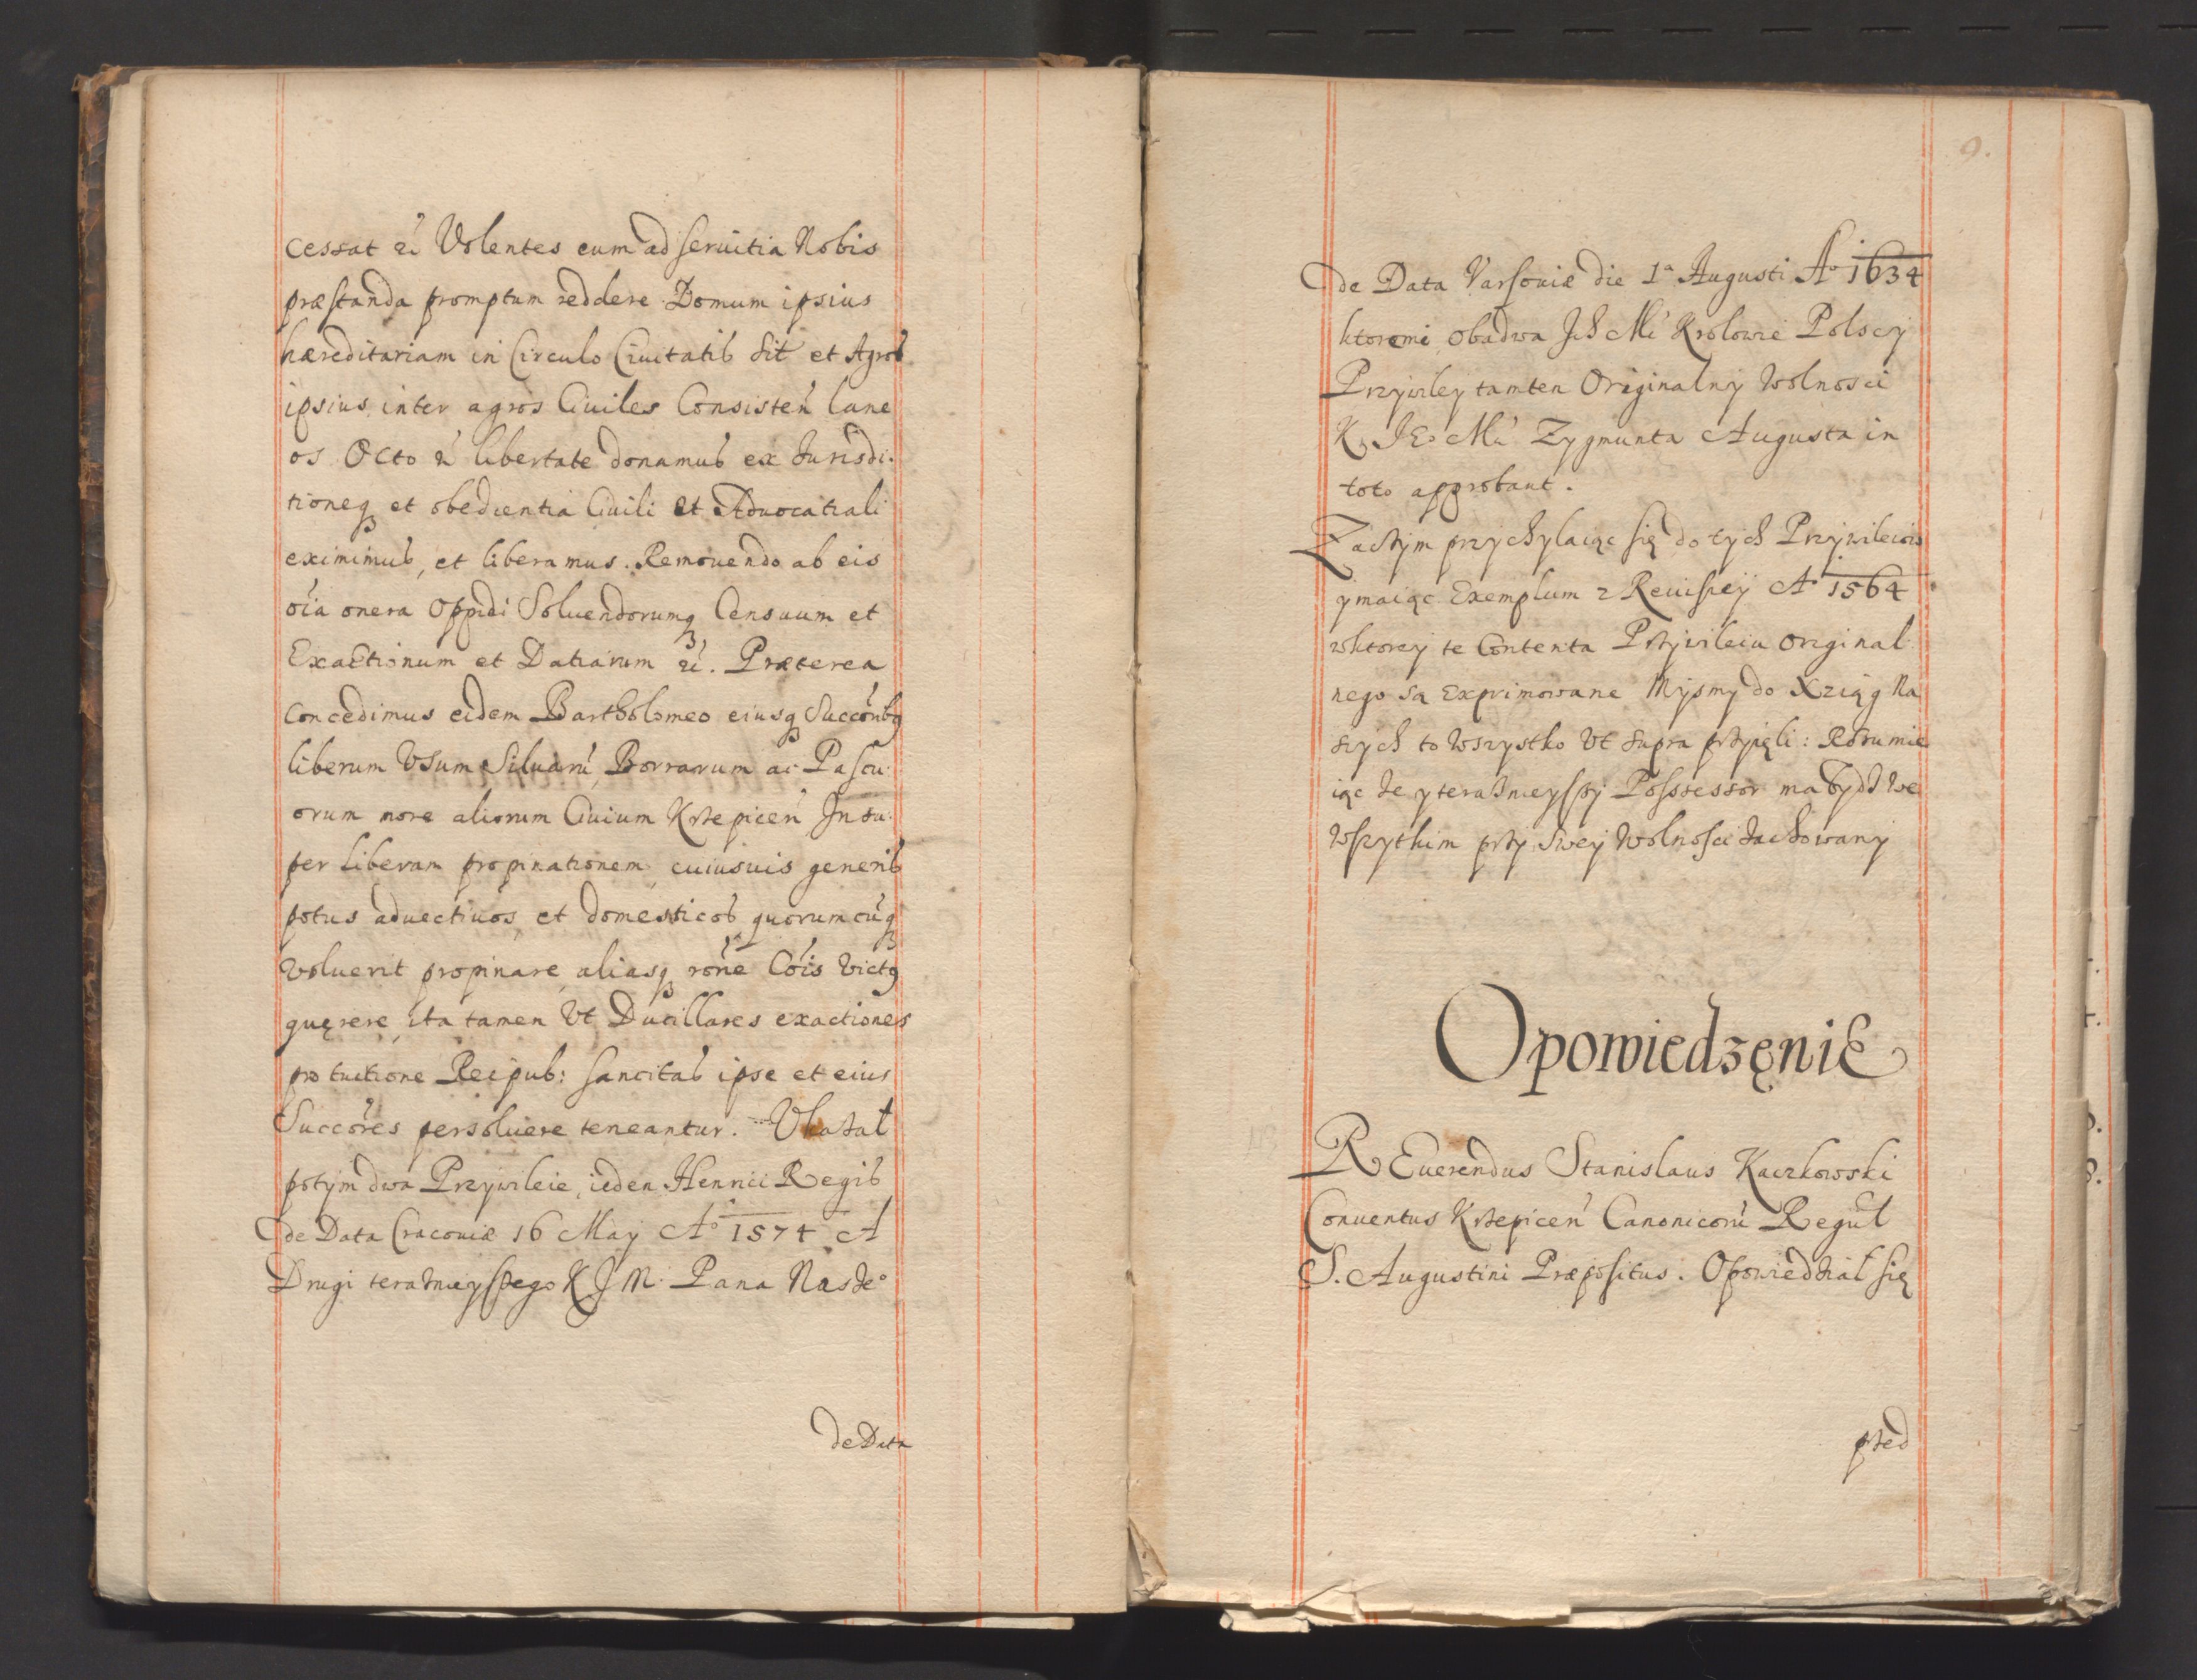 cessat &c̃ Volentes eum ad seruitia Nobis
præstanda promptum reddere Domum ipsius
hæreditariam in Circulo Ciuitatis Sit̃ et Agros
ipsius inter agros Ciuiles Consisteñ lane
os Octo ñ libertate donamus ex Jurisdi
tioneq₃ et obedientia Ciuili et Aduocatiali
eximimus, et liberamus. Remouendo ab eis
oı̃a onera Oppidi Soluendorumq₃ Censuum et
Exactionum et Datiarum &c̃. Præterea
Concedimus eidem Bartholomeo eiusq₃ Succõribꝯ
liberum Vsum Siluarũ, Borrarum ac Pascu
orum more aliorum Ciuium Krzepiceñ Insu
per liberam propinationem cuiusuis generis
potus aduectiuos, et domesticos quorumcũq₃
Voluerit propinare, aliasq₃ rõne Cõis Victꝯ
quęrere, ita tamen Vt Ducillares exactiones
pro tuitione Reipub: sancitas ipse et eius
Succõres persoluere teneantur. Vkazał
potym dwa Przywileie, ieden Henrici Regis
de Data Cracouiæ 16 May Aº 1574 A
Drugi teraznieyszego K J M Pana Naszeº
de Data
9.
de Data Varsouiæ die 1ª Augusti Aº 1634
ktoremi obadwa Ich Mć Krolowie Polscy
Przywiley tamten Originalny Wolnosci
K. JEº Mći Zygmunta Augusta in
toto approbant.
Zaczym przychylaiąc się do tych Przywileiow
y maiąc Exemplum z Reuisiey Aº 1564
wktorey te Contenta Przywileiu original
nego są Exprimowane Mysmy do Xziąg Na
szych to Wszystko Vt supra przyięli: Rozumie
iąc ze y teraznieyszy Possessor ma bydz we
Wszytkim przy swey Wolnosci zachowany
OpowiedzęniE
REuerendus Stanislaus Kaczkowski
Conuentus Krzepiceñ Canonicorũ Regul̃
S. Augustini Præpositus. Opowiedział się
przed